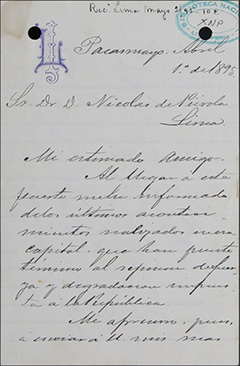 Recd Lima mayo 2/95
BIBLIOTECA NAC
XNP
Pacasmayo, Abril
1º de 1895
Sr. Dr. D. Nicolas de Piérola
Lima
Mi estimado Amigo.
Al llegar a este
puerto me he informado
de los últimos aconteci
mientos realizados en esa
capital, que han puesto
término al regimen de
y degradacion impues
ta á la República
Me apresuro, pues,
á enviar á U mis mas